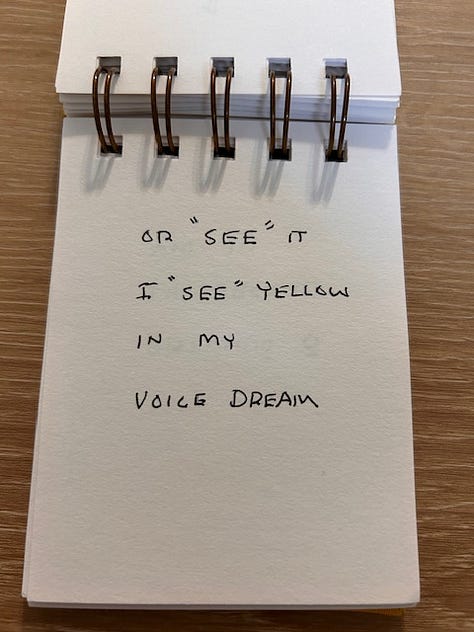 OR "SEE" IT
I "SEE" YELLOW
IN MY
VOICE DREAM